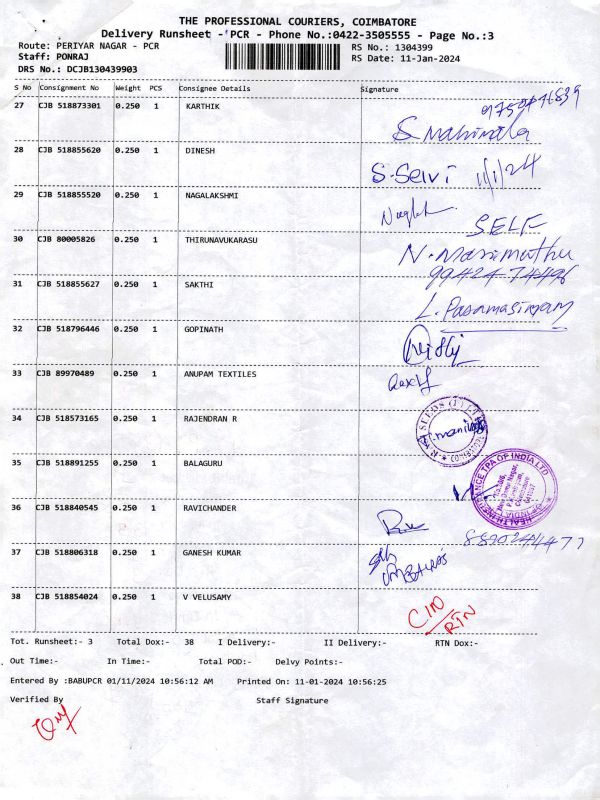 THE PROFESSIONAL COURIERS, COIMBATORE
Delivery Runsheet - PCR - Phone No.:0422-3505555 - Page No.:3
Route: PERIYAR NAGAR - PCR
RS No.: 1304399
Staff: PONRAJ
RS Date: 11-Jan-2024
DRS No.: DCJB130439903
S No Consignment No Weight PCS Consignee Details Signature
27 CJB 518873301 0.250 1 KARTHIK
28 CJB 518855620 0.250 1 DINESH S. Selvi 11/1/24
29 CJB 518855520 0.250 1 NAGALAKSHMI
SELF
30 CJB 80005826 0.250 1 THIRUNAVUKARASU N. Marimuthu
99424 74496
31 CJB 518855627 0.250 1 SAKTHI
32 CJB 518796446 0.250 1 GOPINATH
33 CJB 89970489 0.250 1 ANUPAM TEXTILES
34 CJB 518573165 0.250 1 RAJENDRAN R
35 CJB 518891255 0.250 1 BALAGURU
36 CJB 518840545 0.250 1 RAVICHANDER
37 CJB 518806318 0.250 1 GANESH KUMAR
38 CJB 518854024 0.250 1 V VELUSAMY
RTN
Tot. Runsheet:- 3 Total Dox:- 38 I Delivery:- II Delivery:- RTN Dox:-
Out Time:- In Time:- Total POD:- Delvy Points:-
Entered By :BABUPCR 01/11/2024 10:56:12 AM Printed On: 11-01-2024 10:56:25
Verified By Staff Signature